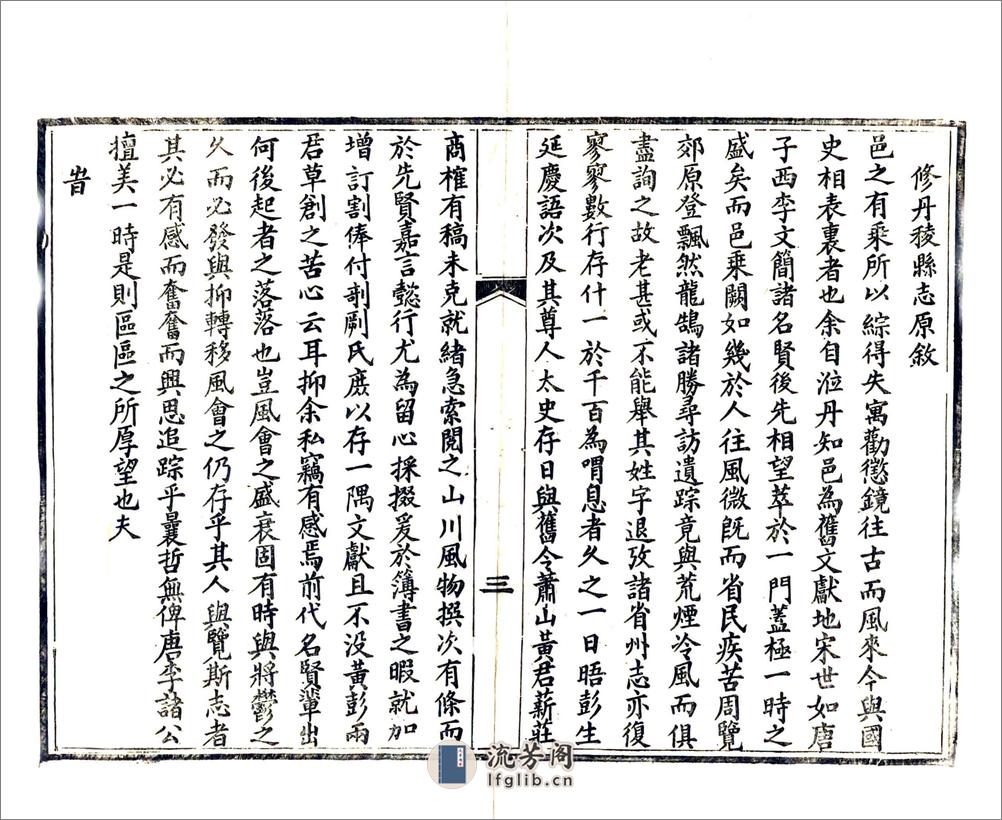 修丹稜縣志原敘
邑之有乘所以綜得失寓勸懲鏡往古而風來今與國
史相表裏者也余自涖丹知邑為舊文獻地宋世如唐
子西李文簡諸名賢後先相望萃於一門蓋極一時之
盛矣而邑乘闕如幾於人往風微旣而省民疾苦周覽
郊原登飄然龍鵠諸勝尋訪遺踪竟與荒煙冷風而俱
盡詢之故老甚或不能舉其姓字退攷諸省州志亦復
寥寥數行存什一於千百為喟息者久之一日晤彭生
延慶語次及其尊人太史存日與舊令蕭山黃君薪莊
商榷有稿未克就緒急索閱之山川風物撰次有條而
於先賢嘉言懿行尤為留心採掇爰於簿書之暇就加
增訂割俸付剞劂氏庶以存一隅文獻且不没黃彭兩
君草創之苦心云耳抑余私竊有感焉前代名賢輩出
何後起者之落落也豈風會之盛衰固有時與將鬱之
久而必發與抑轉移風會之仍存乎其人與覽斯志者
其必有感而奮奮而興思追踪乎曩哲無俾唐李諸公
擅美一時是則區區之所厚望也夫
旹
三
流芳阁
lfglib.cn